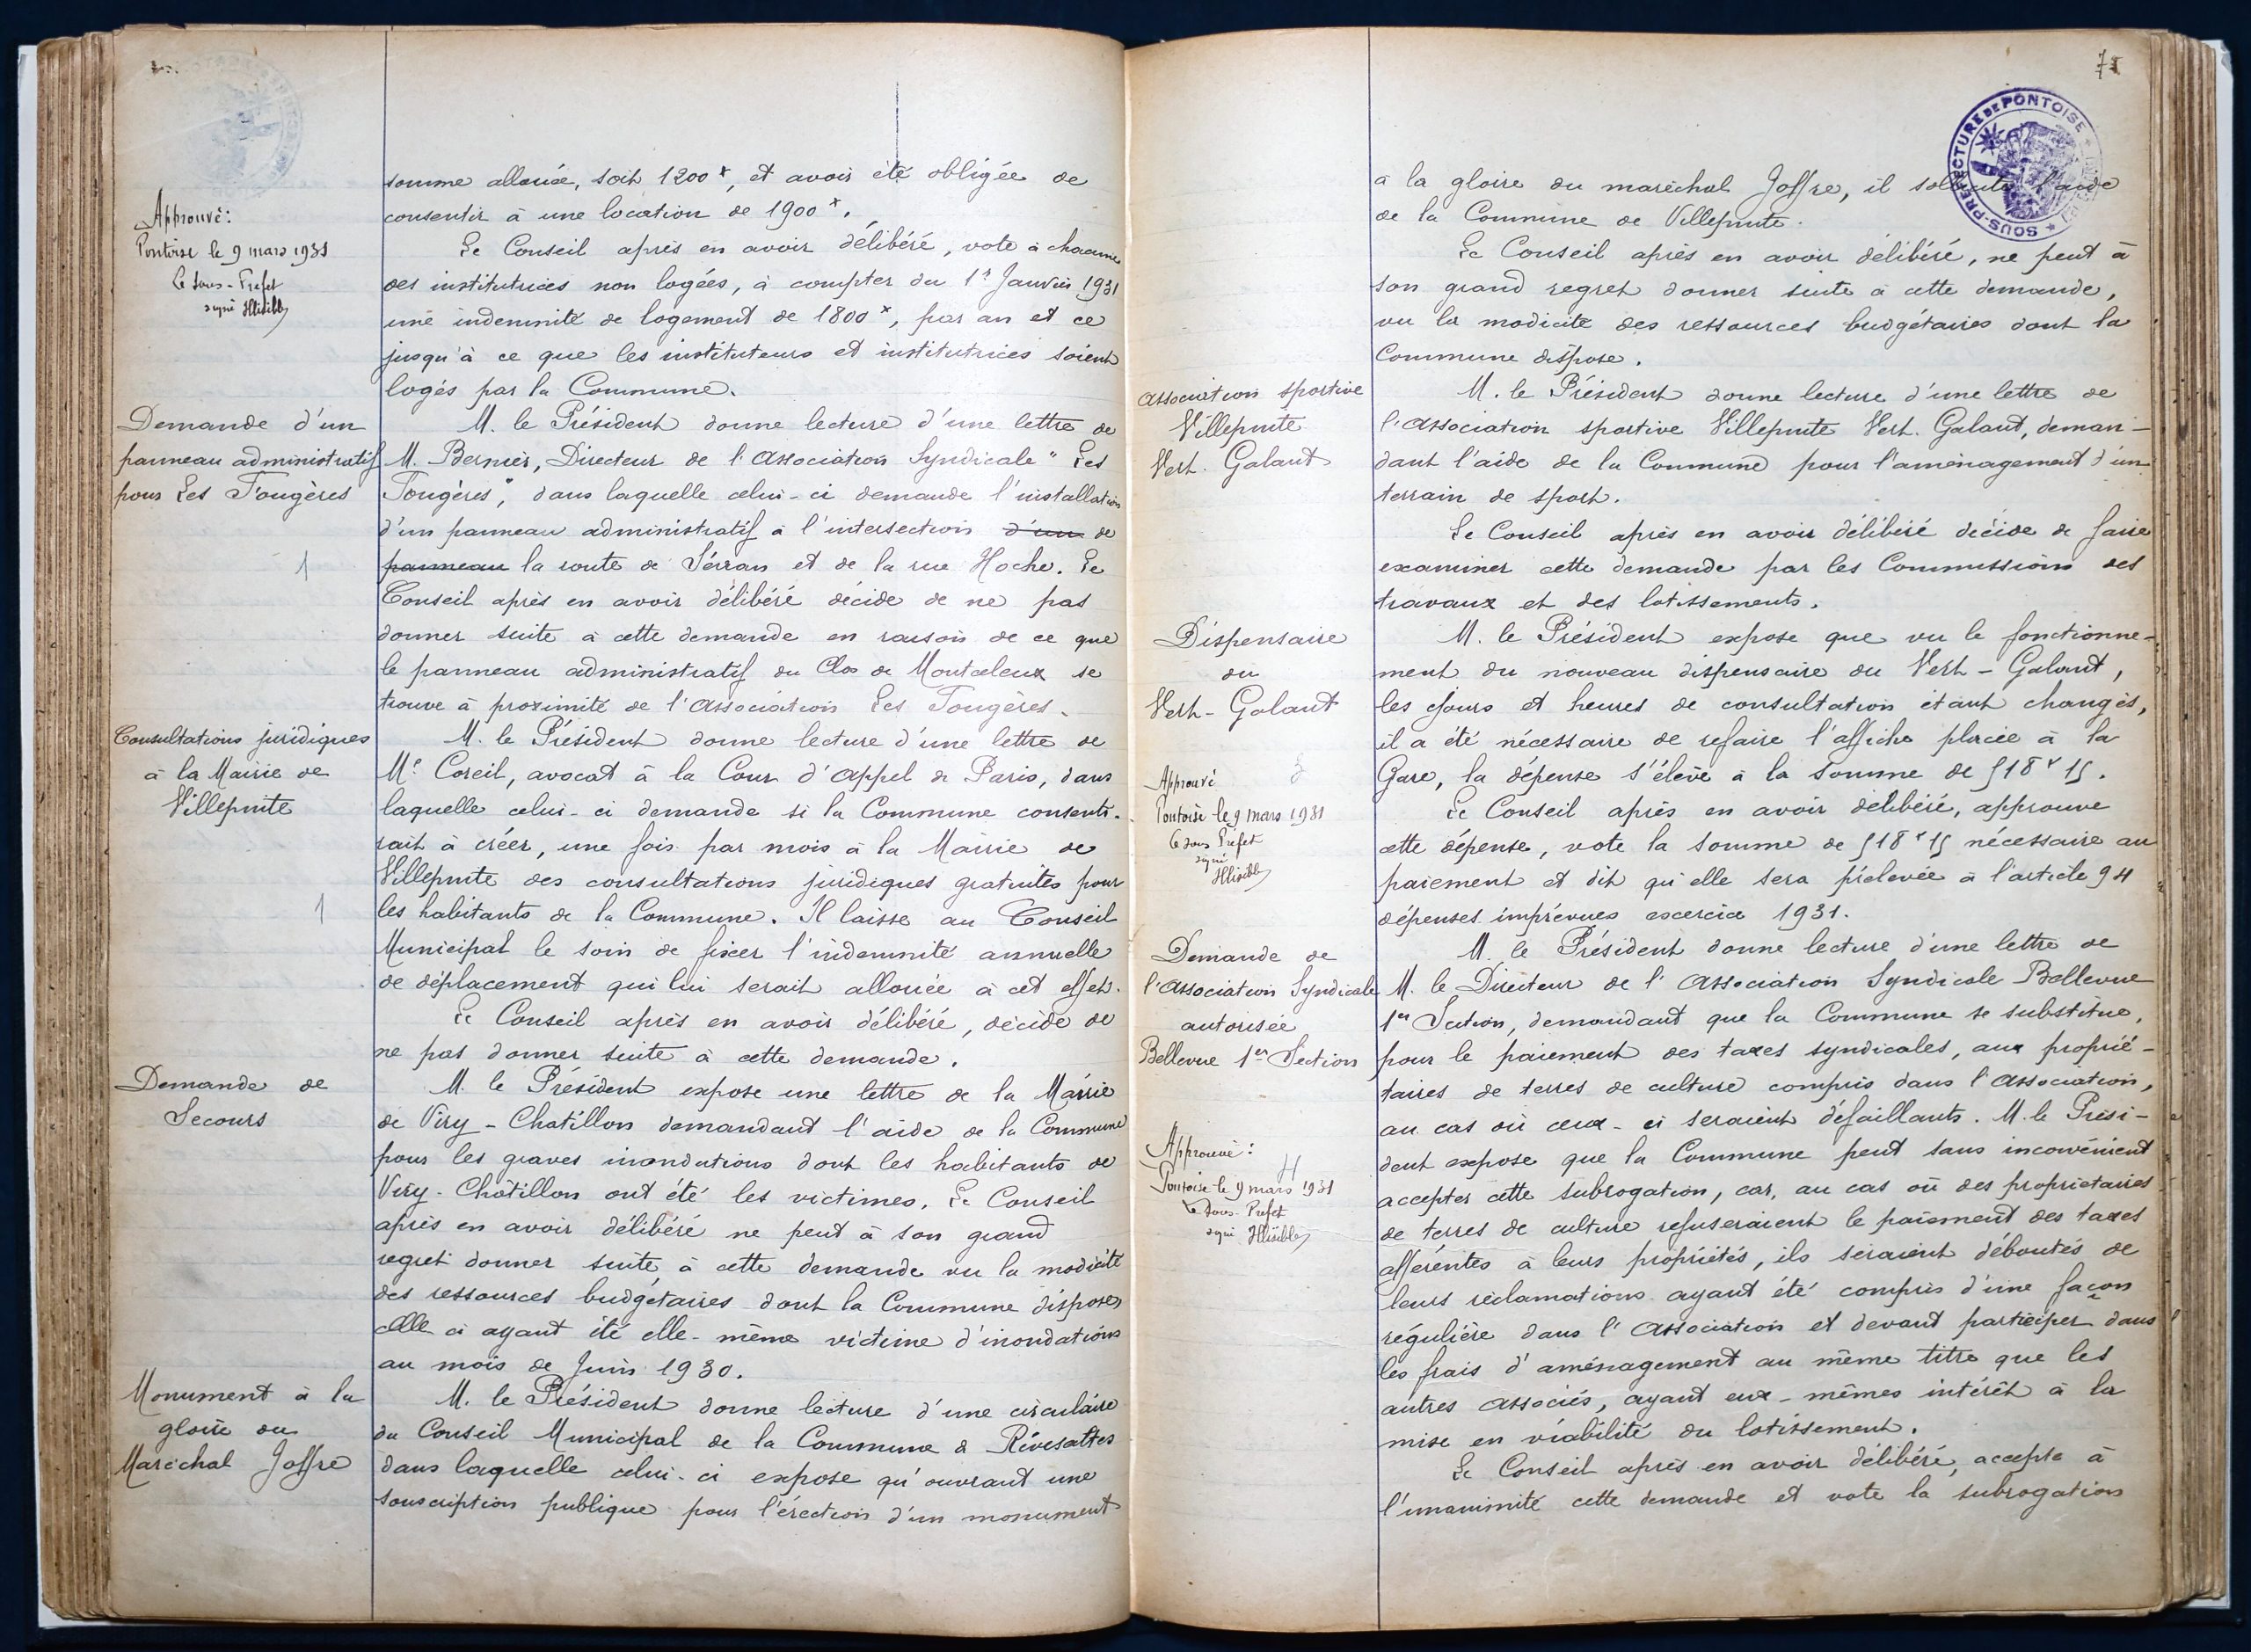 Approuvé:
Pontoise le 9 mars 1931
Le Sous-Préfet
signé Illisible
somme allouée, soit 1200 f, et avoir été obligée de
consentir à une location de 1900 f.
Le Conseil après en avoir délibéré, vote à chacune
des institutrices non logées, à compter du 1er Janvier 1931
une indemnité de logement de 1800 f, par an et ce
jusqu'à ce que les instituteurs et institutrices soient
logés par la Commune.
Demande d'un
panneau administratif
pour Les Fougères
1
M. le Président donne lecture d'une lettre de
M. Bernier, Directeur de l'Association Syndicale "Les
Fougères", dans laquelle celui-ci demande l'installation
d'un panneau administratif à l'intersection d'un de
panneau la route de Sévran et de la rue Hoche. Le
Conseil après en avoir délibéré décide de ne pas
donner suite à cette demande en raison de ce que
le panneau administratif du Clos de Montceleux se
trouve à proximité de l'Association Les Fougères.
Consultations juridiques
à la Mairie de
Villepinte
1
M. le Président donne lecture d'une lettre de
Me Coreil, avocat à la Cour d'Appel de Paris, dans
laquelle celui-ci demande si la Commune consenti-
rait à créer, une fois par mois à la Mairie de
Villepinte des consultations juridiques gratuites pour
les habitants de la Commune. Il laisse au Conseil
Municipal le soin de fixer l'indemnité annuelle
de déplacement qui lui serait allouée à cet effet.
Le Conseil après en avoir délibéré, décide de
ne pas donner suite à cette demande.
Demande de
Secours
M. le Président expose une lettre de la Mairie
de Viry-Chatillon demandant l'aide de la Commune
pour les graves inondations dont les habitants de
Viry-Châtillon ont été les victimes. Le Conseil
après en avoir délibéré ne peut à son grand
regret donner suite à cette demande vu la modicité
des ressources budgétaires dont la Commune dispose,
celle ci ayant été elle-même victime d'inondations
au mois de Juin 1930.
Monument à la
gloire du
Maréchal Joffre
M. le Président donne lecture d'une circulaire
du Conseil Municipal de la Commune de Rivesaltes
dans laquelle celui-ci expose qu'ouvrant une
souscription publique pour l'érection d'un monument
SOUS-PRÉFECTURE DE PONTOISE
à la gloire du maréchal Joffre, il sollicite l'aide
de la Commune de Villepinte.
Le Conseil après en avoir délibéré, ne peut à
son grand regret donner suite à cette demande,
vu la modicité des ressources budgétaires dont la
Commune dispose.
Association sportive
Villepinte
Vert-Galant
M. le Président donne lecture d'une lettre de
l'Association sportive Villepinte Vert-Galant, deman-
dant l'aide de la Commune pour l'aménagement d'un
terrain de sport.
Le Conseil après en avoir délibéré décide de faire
examiner cette demande par les Commissions des
travaux et des lotissements.
Dispensaire
du
Vert-Galant
3
Approuvé
Pontoise le 9 mars 1931
Le Sous Préfet
signé
Illisible
M. le Président expose que vu le fonctionne-
ment du nouveau dispensaire du Vert-Galant,
les jours et heures de consultation étant changés,
il a été nécessaire de refaire l'affiche placée à la
Gare, la dépense s'élève à la somme de 518 f 15.
Le Conseil après en avoir délibéré, approuve
cette dépense, vote la somme de 518 f 15 nécessaire au
paiement et dit qu'elle sera prélevée à l'article 94
dépenses imprévues exercice 1931.
Demande de
l'Association Syndicale
autorisée
Bellevue 1ère Section
4
Approuvé:
Pontoise le 9 mars 1931
Le Sous-Préfet
signé Illisible
M. le Président donne lecture d'une lettre de
M. le Directeur de l'Association Syndicale Bellevue
1ère Section, demandant que la Commune se substitue,
pour le paiement des taxes syndicales, aux proprié-
taires de terres de culture compris dans l'Association,
au cas où ceux-ci seraient défaillants. M. le Prési-
dent expose que la Commune peut sans inconvénient
accepter cette subrogation, car, au cas où des propriétaires
de terres de culture refuseraient le paiement des taxes
afférentes à leurs propriétés, ils seraient déboutés de
leurs réclamations ayant été compris d'une façon
régulière dans l'Association et devant participer dans
les frais d'aménagement au même titre que les
autres associés, ayant eux-mêmes intérêt à la
mise en viabilité du lotissement.
Le Conseil après en avoir délibéré, accepte à
l'unanimité cette demande et vote la subrogation